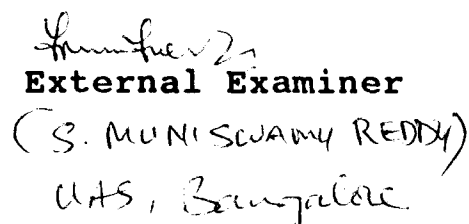 External Examiner
(S. MUNISWAMY REDDY)
UAS, Bangalore